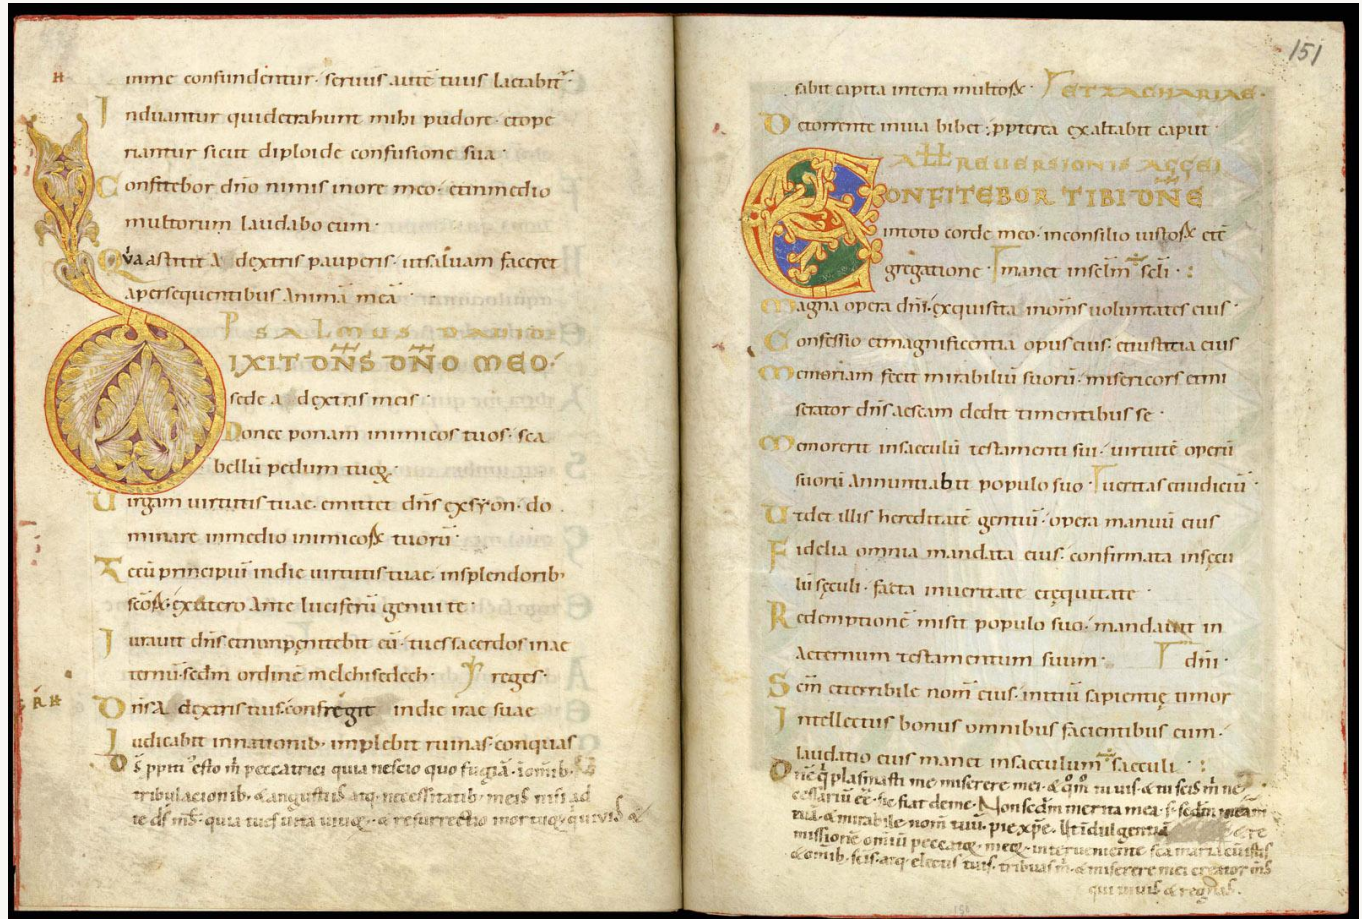 inme confundentur· seruus aute tuus laetabit̄·
Induantur qui detrahunt mihi pudore· etope
riantur sicut diploide confusione sua·
Confitebor dn̄o nimis inore meo· etinmedio
multorum laudabo eum·
Quia astitit A dextris pauperis· utsaluam faceret
apersequentibus Animā meā·
PSALMUS DAVID
DIXIT DN̄S DN̄O MEO·
sede A dextris meis·
Donec ponam inimicos tuos· sca
bellū pedum tuoꝝ·
Uirgam uirtutis tuae· emittet dn̄s exsyon· do
minare inmedio inimicoꝝ tuorū·
Tecū principiū indie uirtutis tuae· insplendorib;
scōꝝ· exutero Ante luciferū genui te·
Iurauit dn̄s etnonpęnitebit eū· tu es sacerdos inae
ternū· secdm ordine melchisedech· reges·
Dn̄s A dextris tuis· confregit indie irae suae
Iudicabit innationib; implebit ruinas· conquas
esto m̄ peccatrici quia nescio quo fugiā·
tribulacionib; & angustiis atq; necessitatib; meis nisi ad
te ds̄ ms̄· quia tu es uita & resurrectio mortuoꝝ·
151
sabit capita interra multoꝝ· ET ZACHARIAE·
Detorrente inuia bibet· ꝓpterea exaltabit caput·
REUERSIONIS AGGEI
CONFITEBOR TIBI DN̄E
intoto corde meo· inconsilio iustoꝝ etc̄
gregatione· manet insclm̄ scli·
Magna opera dn̄i· exquisita inom̄s uoluntates eius·
Confessio etmagnificentia opus eius· etiustitia eius
Memoriam fecit mirabiliū suorū· misericors etmi
serator dn̄s aescam dedit timentibus se·
Memorerit insaeculū testamenti sui· uirtutē operū
suorū Annuntiabit populo suo· ueritas etiudiciū·
Utdet illis hereditatē gentiū· opera manuū eius
Fidelia omnia mandata eius· confirmata insęcu
lū sęculi· facta inueritate etęquitate·
Redemptionē misit populo suo· mandauit in
Aeternum testamentum suum· dn̄i·
Scm̄ etterribile nom̄ eius· initiū sapientię timor
Intellectus bonus omnibus facientibus eum·
laudatio eius manet insaeculum saeculi·
Dn̄e q̄ plasmasti me miserere mei· & qm̄ tu uis· & tu scis m̄ ne
cessariū eē· sic fiat de me· Non secdm merita mea· s; secdm
& mirabile nom̄ tuū· pie xp̄e· Ut indulgentiā
missionē omiū peccatoꝝ meoꝝ· interueniente sca maria
& omib; scis· atq; electis tuis· tribuas m̄· & miserere mei creator
qui uiuis & regnas·